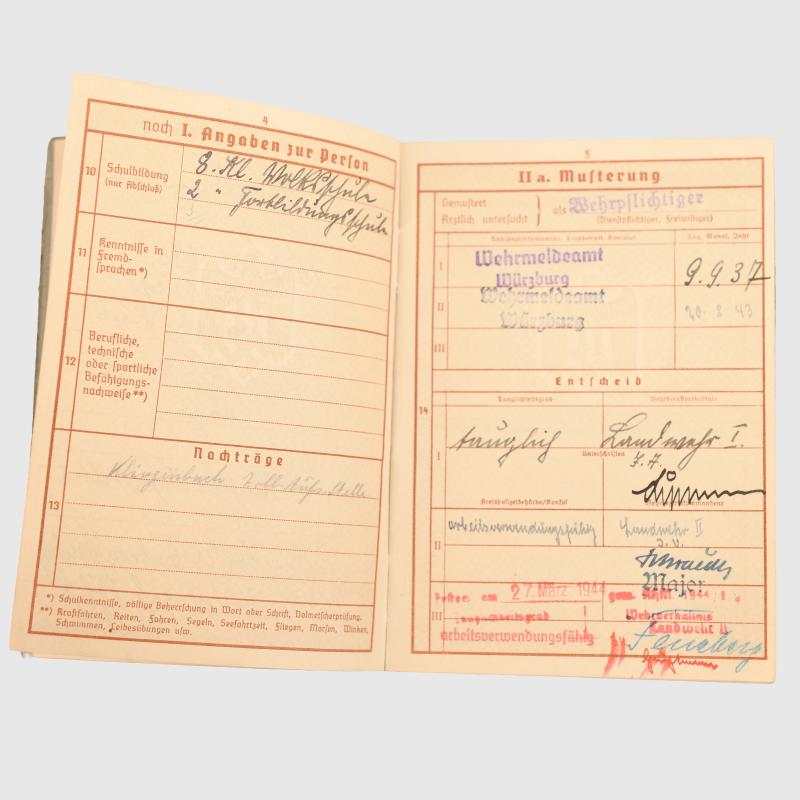 4
noch I. Angaben zur Person
10 Schulbildung
(nur Abschluß)
8. Kl. Volksschule
2 " Fortbildungsschule
11 Kenntnisse in
Fremd-
sprachen*)
12 Berufliche,
technische
oder sportliche
Befähigungs-
nachweise**)
Nachträge
13
*) Schulkenntnisse, völlige Beherrschung in Wort oder Schrift, Dolmetscherprüfung.
**) Kraftfahren, Reiten, Fahren, Segeln, Seefahrtzeit, Fliegen, Morsen, Winken,
Schwimmen, Leibesübungen usw.
5
II a. Musterung
Gemustert
Ärztlich untersucht } als Wehrpflichtiger
(Dienstpflichtiger, Freiwilliger)
Tag, Monat, Jahr
I Wehrmeldeamt
Würzburg
9.9.37
II Wehrmeldeamt
Würzburg
20.8.43
III
Entscheid
14
Tauglichkeitsgrad Wehrdienstverhältnis
I tauglich Landwehr I.
Unterschriften
Kreispolizeibehörde/Konsul
II arbeitsverwendungsfähig Landwehr II
Major
am 27. März 1944
III Tauglichkeitsgrad Wehrverhältnis
arbeitsverwendungsfähig Landwehr II